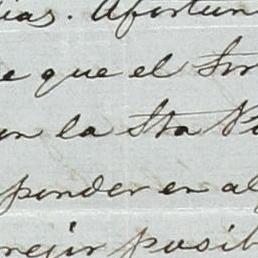 ias. Afortun
e que el Sor
en la Sta
ponder en al
mejor posib